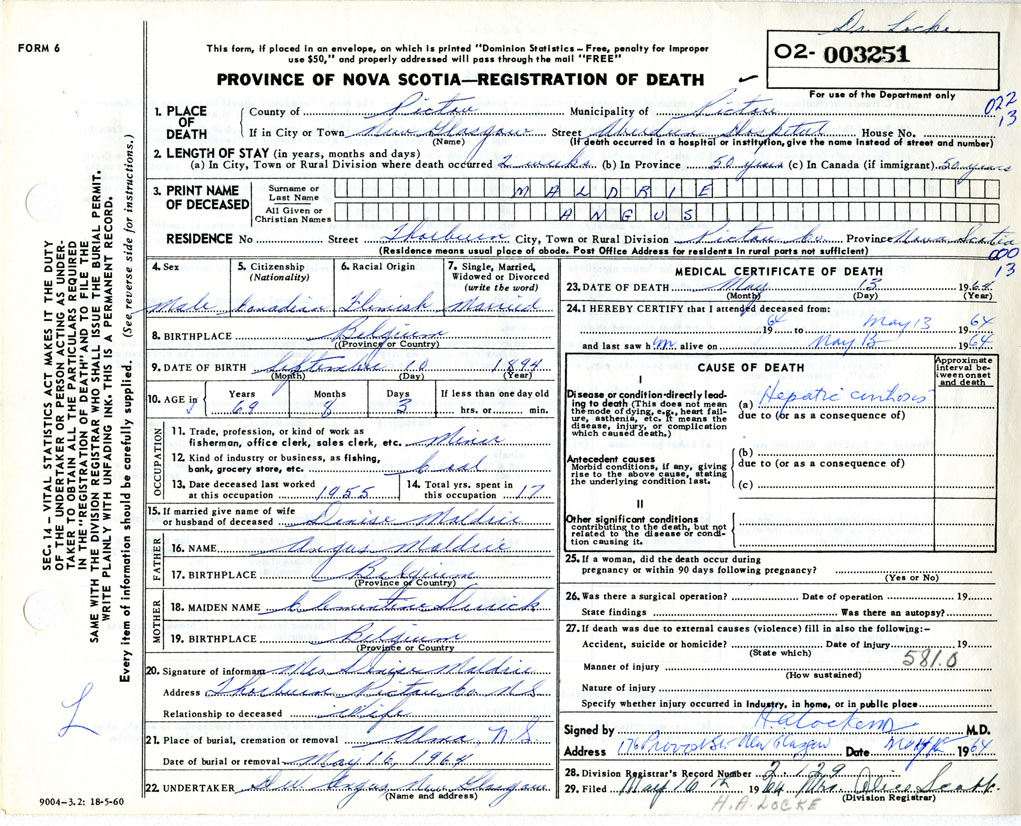 Dr. Locke
FORM 6
This form, if placed in an envelope, on which is printed "Dominion Statistics – Free, penalty for improper
use $50," and properly addressed will pass through the mail "FREE"
PROVINCE OF NOVA SCOTIA—REGISTRATION OF DEATH
02- 003251
For use of the Department only
022
13
1. PLACE OF DEATH
County of Pictou Municipality of Pictou
If in City or Town New Glasgow Street Aberdeen Hospital House No.
(Name) (If death occurred in a hospital or institution, give the name instead of street and number)
2. LENGTH OF STAY (in years, months and days)
(a) In City, Town or Rural Division where death occurred 2 weeks (b) In Province 50 years (c) In Canada (if immigrant) 50 years
3. PRINT NAME OF DECEASED
Surname or Last Name MALDRIE
All Given or Christian Names ANGUS
RESIDENCE No Street Thorburn City, Town or Rural Division Pictou Co. Province Nova Scotia
(Residence means usual place of abode. Post Office Address for residents in rural parts not sufficient)
000
13
4. Sex
Male
5. Citizenship (Nationality)
Canadian
6. Racial Origin
Flemish
7. Single, Married, Widowed or Divorced (write the word)
Married
8. BIRTHPLACE Belgium
(Province or Country)
9. DATE OF BIRTH September 10 1894
(Month) (Day) (Year)
10. AGE in Years 69 Months 8 Days 3 If less than one day old
hrs. or min.
OCCUPATION
11. Trade, profession, or kind of work as
fisherman, office clerk, sales clerk, etc. Miner
12. Kind of industry or business, as fishing,
bank, grocery store, etc. Coal
13. Date deceased last worked
at this occupation 1955
14. Total yrs. spent in
this occupation 17
15. If married give name of wife
or husband of deceased Denise Maldrie
FATHER
16. NAME Angus Maldrie
17. BIRTHPLACE Belgium
(Province or Country)
MOTHER
18. MAIDEN NAME
19. BIRTHPLACE Belgium
Province or Country
20. Signature of informant Mrs Denise Maldrie
Address Thorburn Pictou Co N.S
Relationship to deceased Wife
21. Place of burial, cremation or removal Alma, N.S.
Date of burial or removal May 16, 1964
22. UNDERTAKER New Glasgow
(Name and address)
9004–3.2: 18-5-60
MEDICAL CERTIFICATE OF DEATH
23. DATE OF DEATH May 13 1964
(Month) (Day) (Year)
24. I HEREBY CERTIFY that I attended deceased from:
1964 to May 13 1964
and last saw him alive on May 13 1964
CAUSE OF DEATH
Approximate interval between onset and death
I
Disease or condition-directly leading
to death (This does not mean
the mode of dying, e.g, heart failure,
asthenia, etc. It means the
disease, injury, or complication
which caused death.)
(a) Hepatic cirrhosis
due to (or as a consequence of)
Antecedent causes
Morbid conditions, if any, giving
rise to the above cause, stating
the underlying condition last.
(b)
due to (or as a consequence of)
(c)
II
Other significant conditions
contributing to the death, but not
related to the disease or condition
causing it.
25. If a woman, did the death occur during
pregnancy or within 90 days following pregnancy?
(Yes or No)
26. Was there a surgical operation? Date of operation 19
State findings Was there an autopsy?
27. If death was due to external causes (violence) fill in also the following:–
Accident, suicide or homicide? Date of injury 19
(State which)
581.0
Manner of injury
(How sustained)
Nature of injury
Specify whether injury occurred in Industry, in home, or in public place
Signed by HALocke MD M.D.
Address 176 Provost St. New Glasgow Date 1964
28. Division Registrar's Record Number 2129
29. Filed May 16th 1964 Mrs. Alice Scott.
(Division Registrar)
H.A. LOCKE
SEC. 14 – VITAL STATISTICS ACT MAKES IT THE DUTY
OF THE UNDERTAKER OR PERSON ACTING AS UNDERTAKER
TO OBTAIN ALL THE PARTICULARS REQUIRED
IN THE "REGISTRATION OF DEATH" AND TO FILE THE
SAME WITH THE DIVISION REGISTRAR WHO SHALL ISSUE THE BURIAL PERMIT.
WRITE PLAINLY WITH UNFADING INK. THIS IS A PERMANENT RECORD.
Every item of information should be carefully supplied. (See reverse side for instructions.)
L